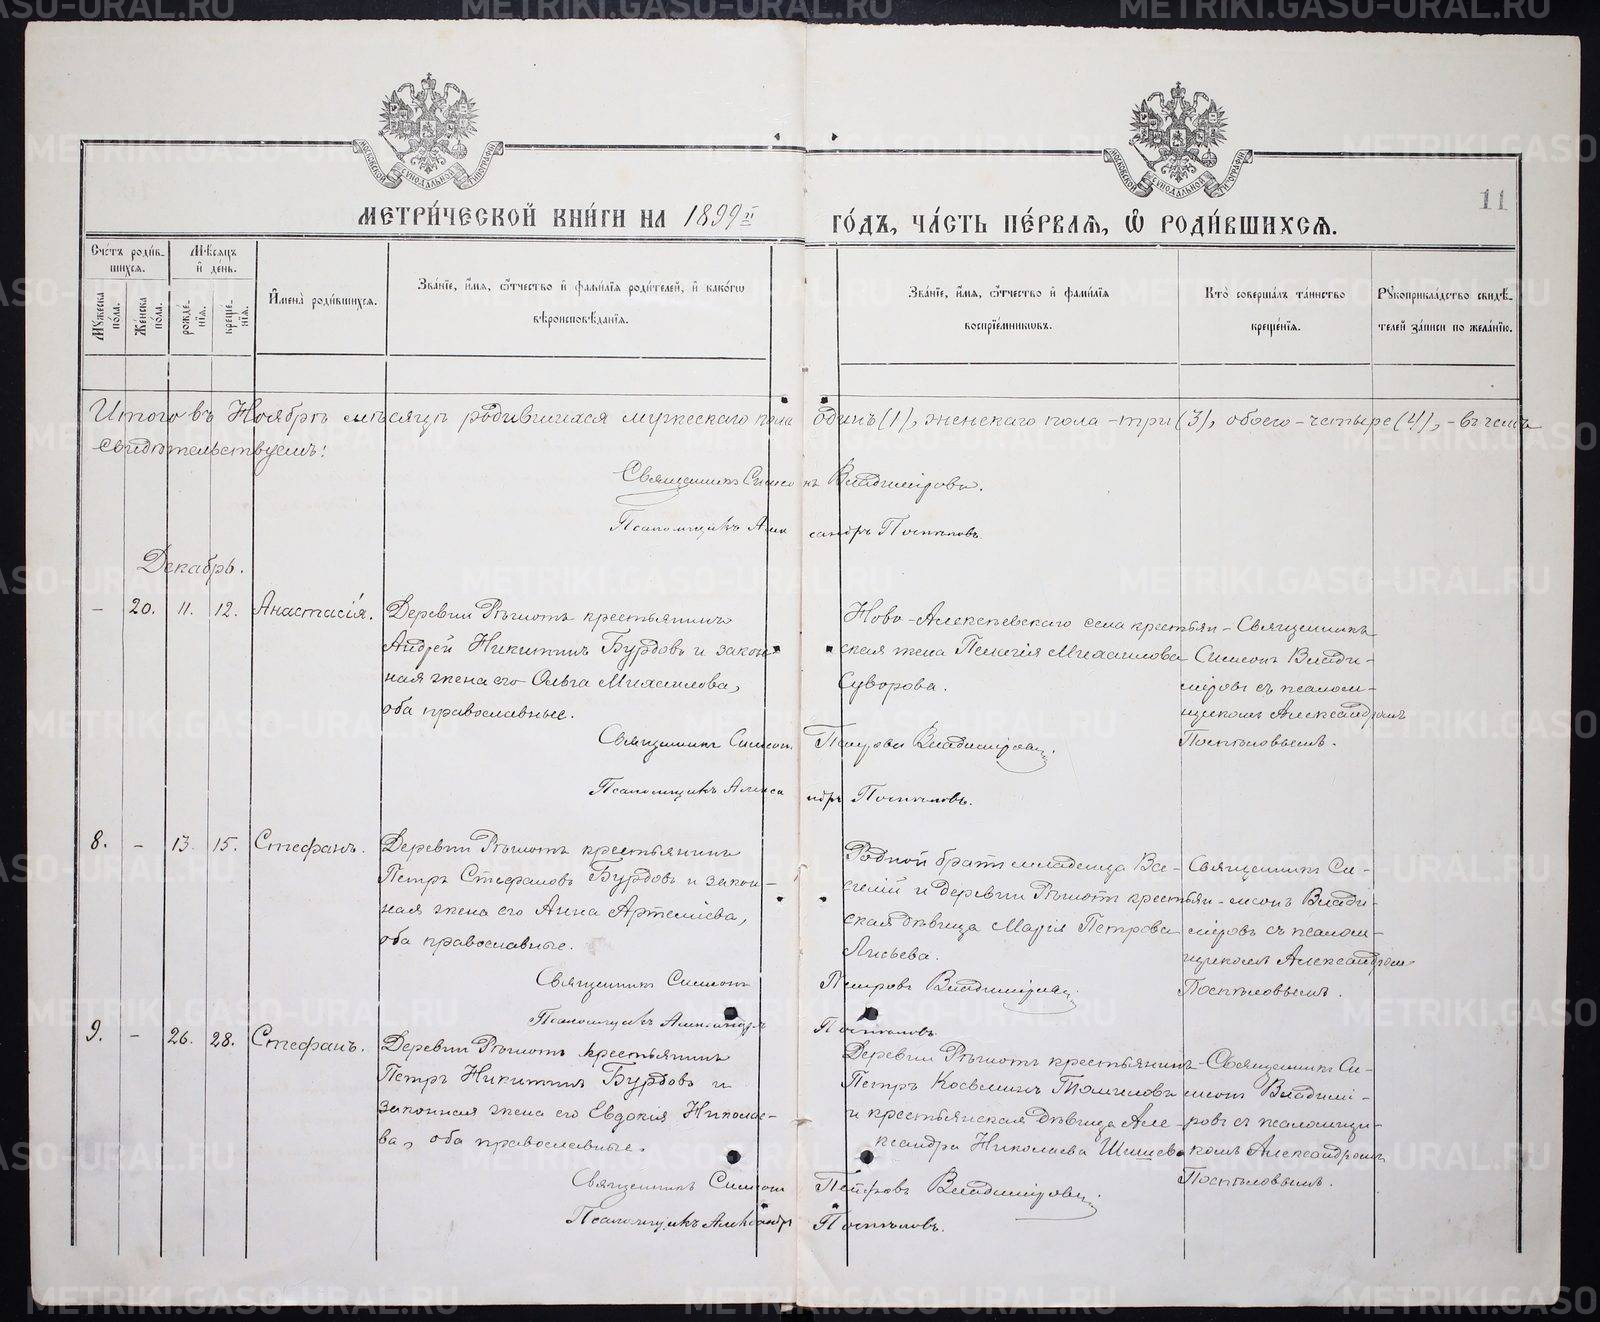 METRIKI.GASO-URAL.RU
МОСКОВСКОЙ СѴНОДАЛЬНОЙ ТИПОГРАФІИ
МОСКОВСКОЙ СѴНОДАЛЬНОЙ ТИПОГРАФІИ
11
МЕТРИ́ЧЕСКОЙ КНИ́ГИ НА 1899й ГО́ДЪ, ЧА́СТЬ ПЕ́РВАѦ, Ѡ҆ РОДИ́ВШИХСѦ.
Сче́тъ роди́в-
шихсѧ.
Мꙋ́жеска по́ла.
Же́нска по́ла.
Мѣ́сѧцъ
и҆ де́нь.
рожде́нїѧ.
креще́нїѧ.
И҆мена̀ роди́вшихсѧ.
Зва́нїе, и҆́мѧ, ѻ҆́тчество и҆ фами́лїѧ роди́телей, и҆ како́гѡ
вѣроисповѣ́данїѧ.
Зва́нїе, и҆́мѧ, ѻ҆́тчество и҆ фами́лїѧ
воспрїе́мникѡвъ.
Кто̀ соверша́лъ та́инство
креще́нїѧ.
Рꙋкоприкла́дство свидѣ́-
телей за́писи по жела́нїю.
Итого въ Ноябрѣ мѣсяцѣ родившихся мужескаго пола одинъ (1), женскаго пола – три (3), обоего – четыре (4), – въ чемъ
свидѣтельствуемъ:
Священникъ Симеонъ Владиміровъ.
Псаломщикъ Александръ Поспѣловъ.
Декабрь.
– 20. 11. 12. Анастасія.
Деревни Рѣшотъ крестьянинъ
Андрей Никитинъ Бурдовъ и закон-
ная жена его Ольга Михаилова,
оба православные.
Ново-Алексѣевскаго села крестьян-
ская жена Пелагія Михаилова
Суворова.
Священникъ
Симеонъ Влади-
міровъ съ псалом-
щикомъ Александромъ
Поспѣловымъ.
Священникъ Симеонъ Петровъ Владиміровъ.
Псаломщикъ Александръ Поспѣловъ.
8. – 13. 15. Стефанъ.
Деревни Рѣшотъ крестьянинъ
Петръ Стефановъ Бурдовъ и закон-
ная жена его Анна Артеміева,
оба православные.
Родной братъ младенца Ва-
силій и деревни Рѣшотъ крестьян-
ская дѣвица Марія Петрова
Священникъ Си-
меонъ Влади-
міровъ съ псалом-
щикомъ Александромъ
Поспѣловымъ.
Священникъ Симеонъ Петровъ Владиміровъ.
Псаломщикъ Александръ Поспѣловъ.
9. – 26. 28. Стефанъ.
Деревни Рѣшотъ крестьянинъ
Петръ Никитинъ Бурдовъ и
законная жена его Евдокія Николае-
ва, оба православные.
Деревни Рѣшотъ крестьянинъ
Петръ Косьминъ
и крестьянская дѣвица Але-
ксандра Николаева
Священникъ Си-
меонъ Владимі-
ровъ съ псаломщи-
комъ Александромъ
Поспѣловымъ.
Священникъ Симеонъ Петровъ Владиміровъ.
Псаломщикъ Александръ Поспѣловъ.